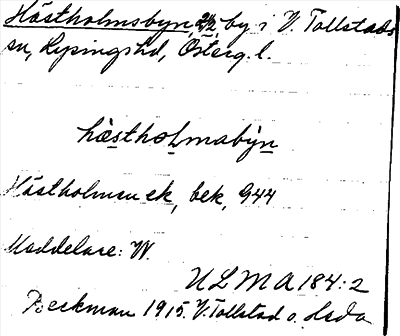 Hästholmsbyn, 2/2, by i V. Tollstads
sn, Lysingshd, Österg. l.
hæstholmabẏn
Hästholmen ek, bek, 944
Meddelare: W.
ULMA 184:2
Beckman 1915. V. Tollstad o. Heda